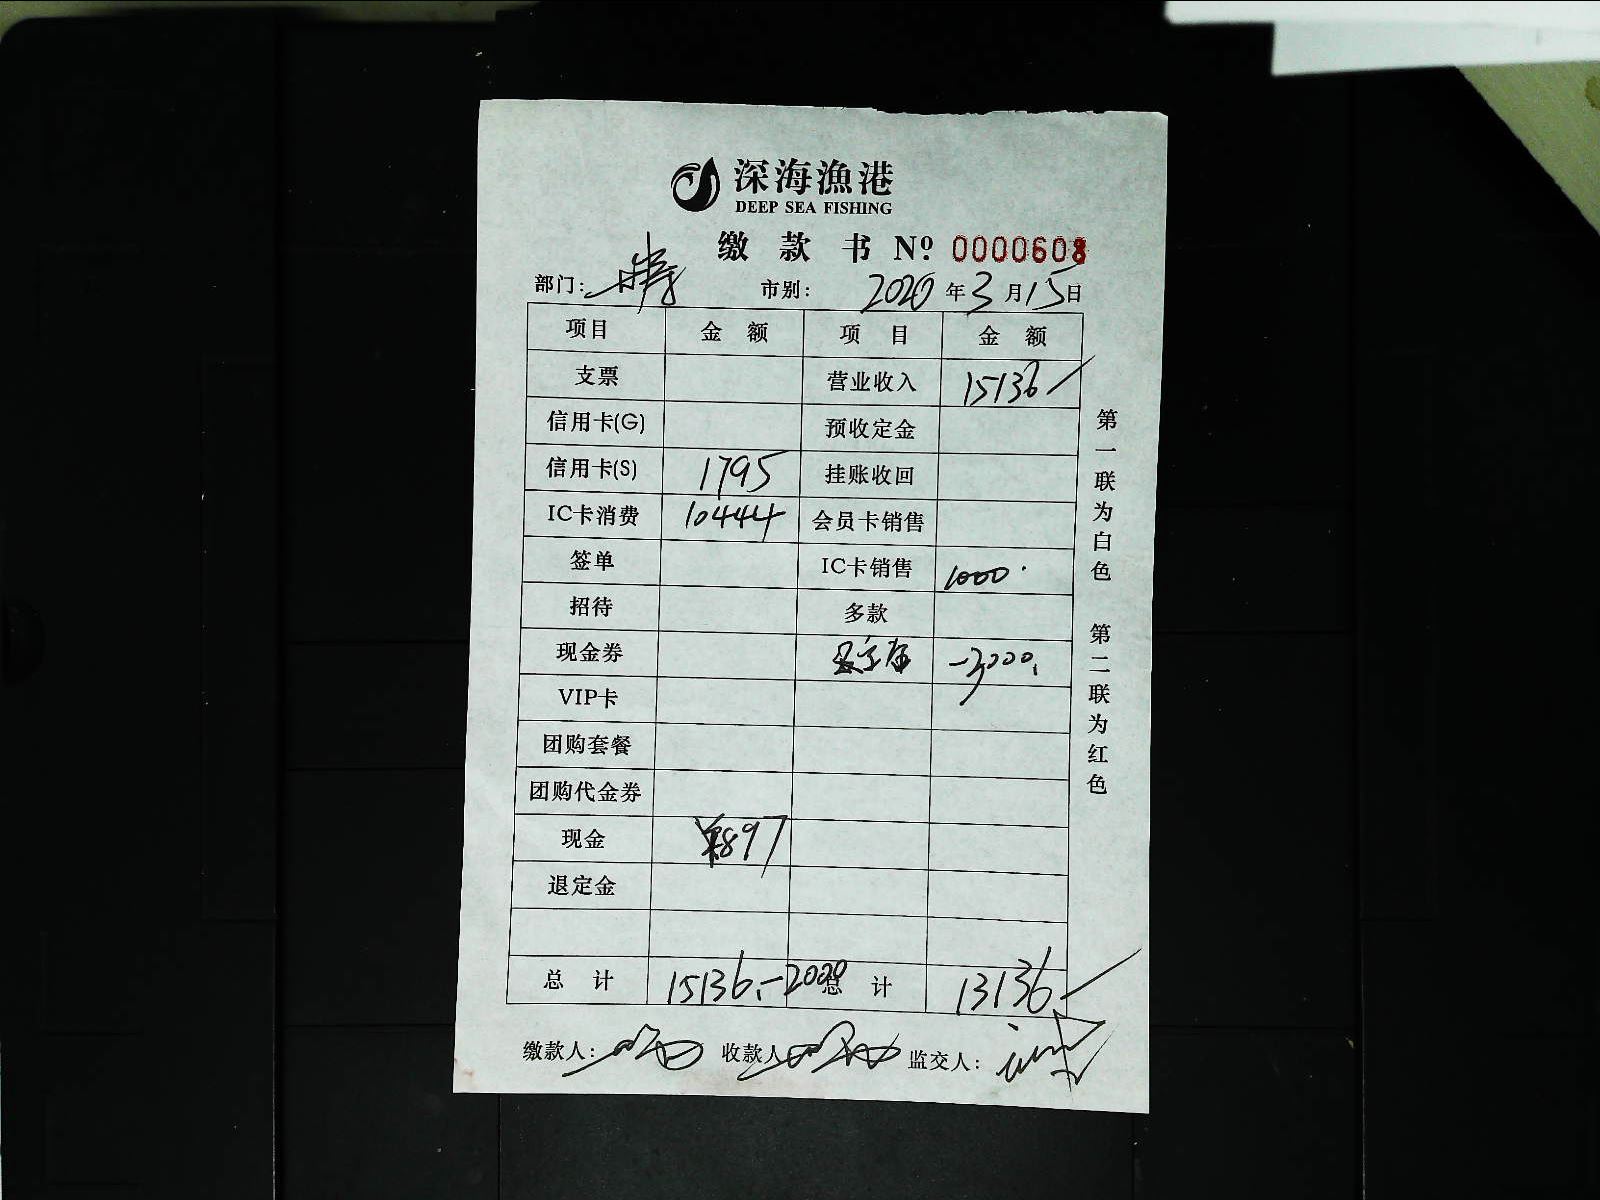 深海渔港
DEEP SEA FISHING
缴 款 书 Nº. 0000608
部门: 市别: 2020 年 3 月 15 日
项目 金 额 项 目 金 额
支票 营业收入 15136
信用卡(G) 预收定金
信用卡(S) 1795 挂账收回
IC卡消费 10444 会员卡销售
签单 IC卡销售 1000
招待 多款
现金券 -3000
VIP卡
团购套餐
团购代金券
现金 897
退定金
总 计 15136 -2000 总 计 13136
缴款人: 收款人 监交人:
第一联为白色 第二联为红色